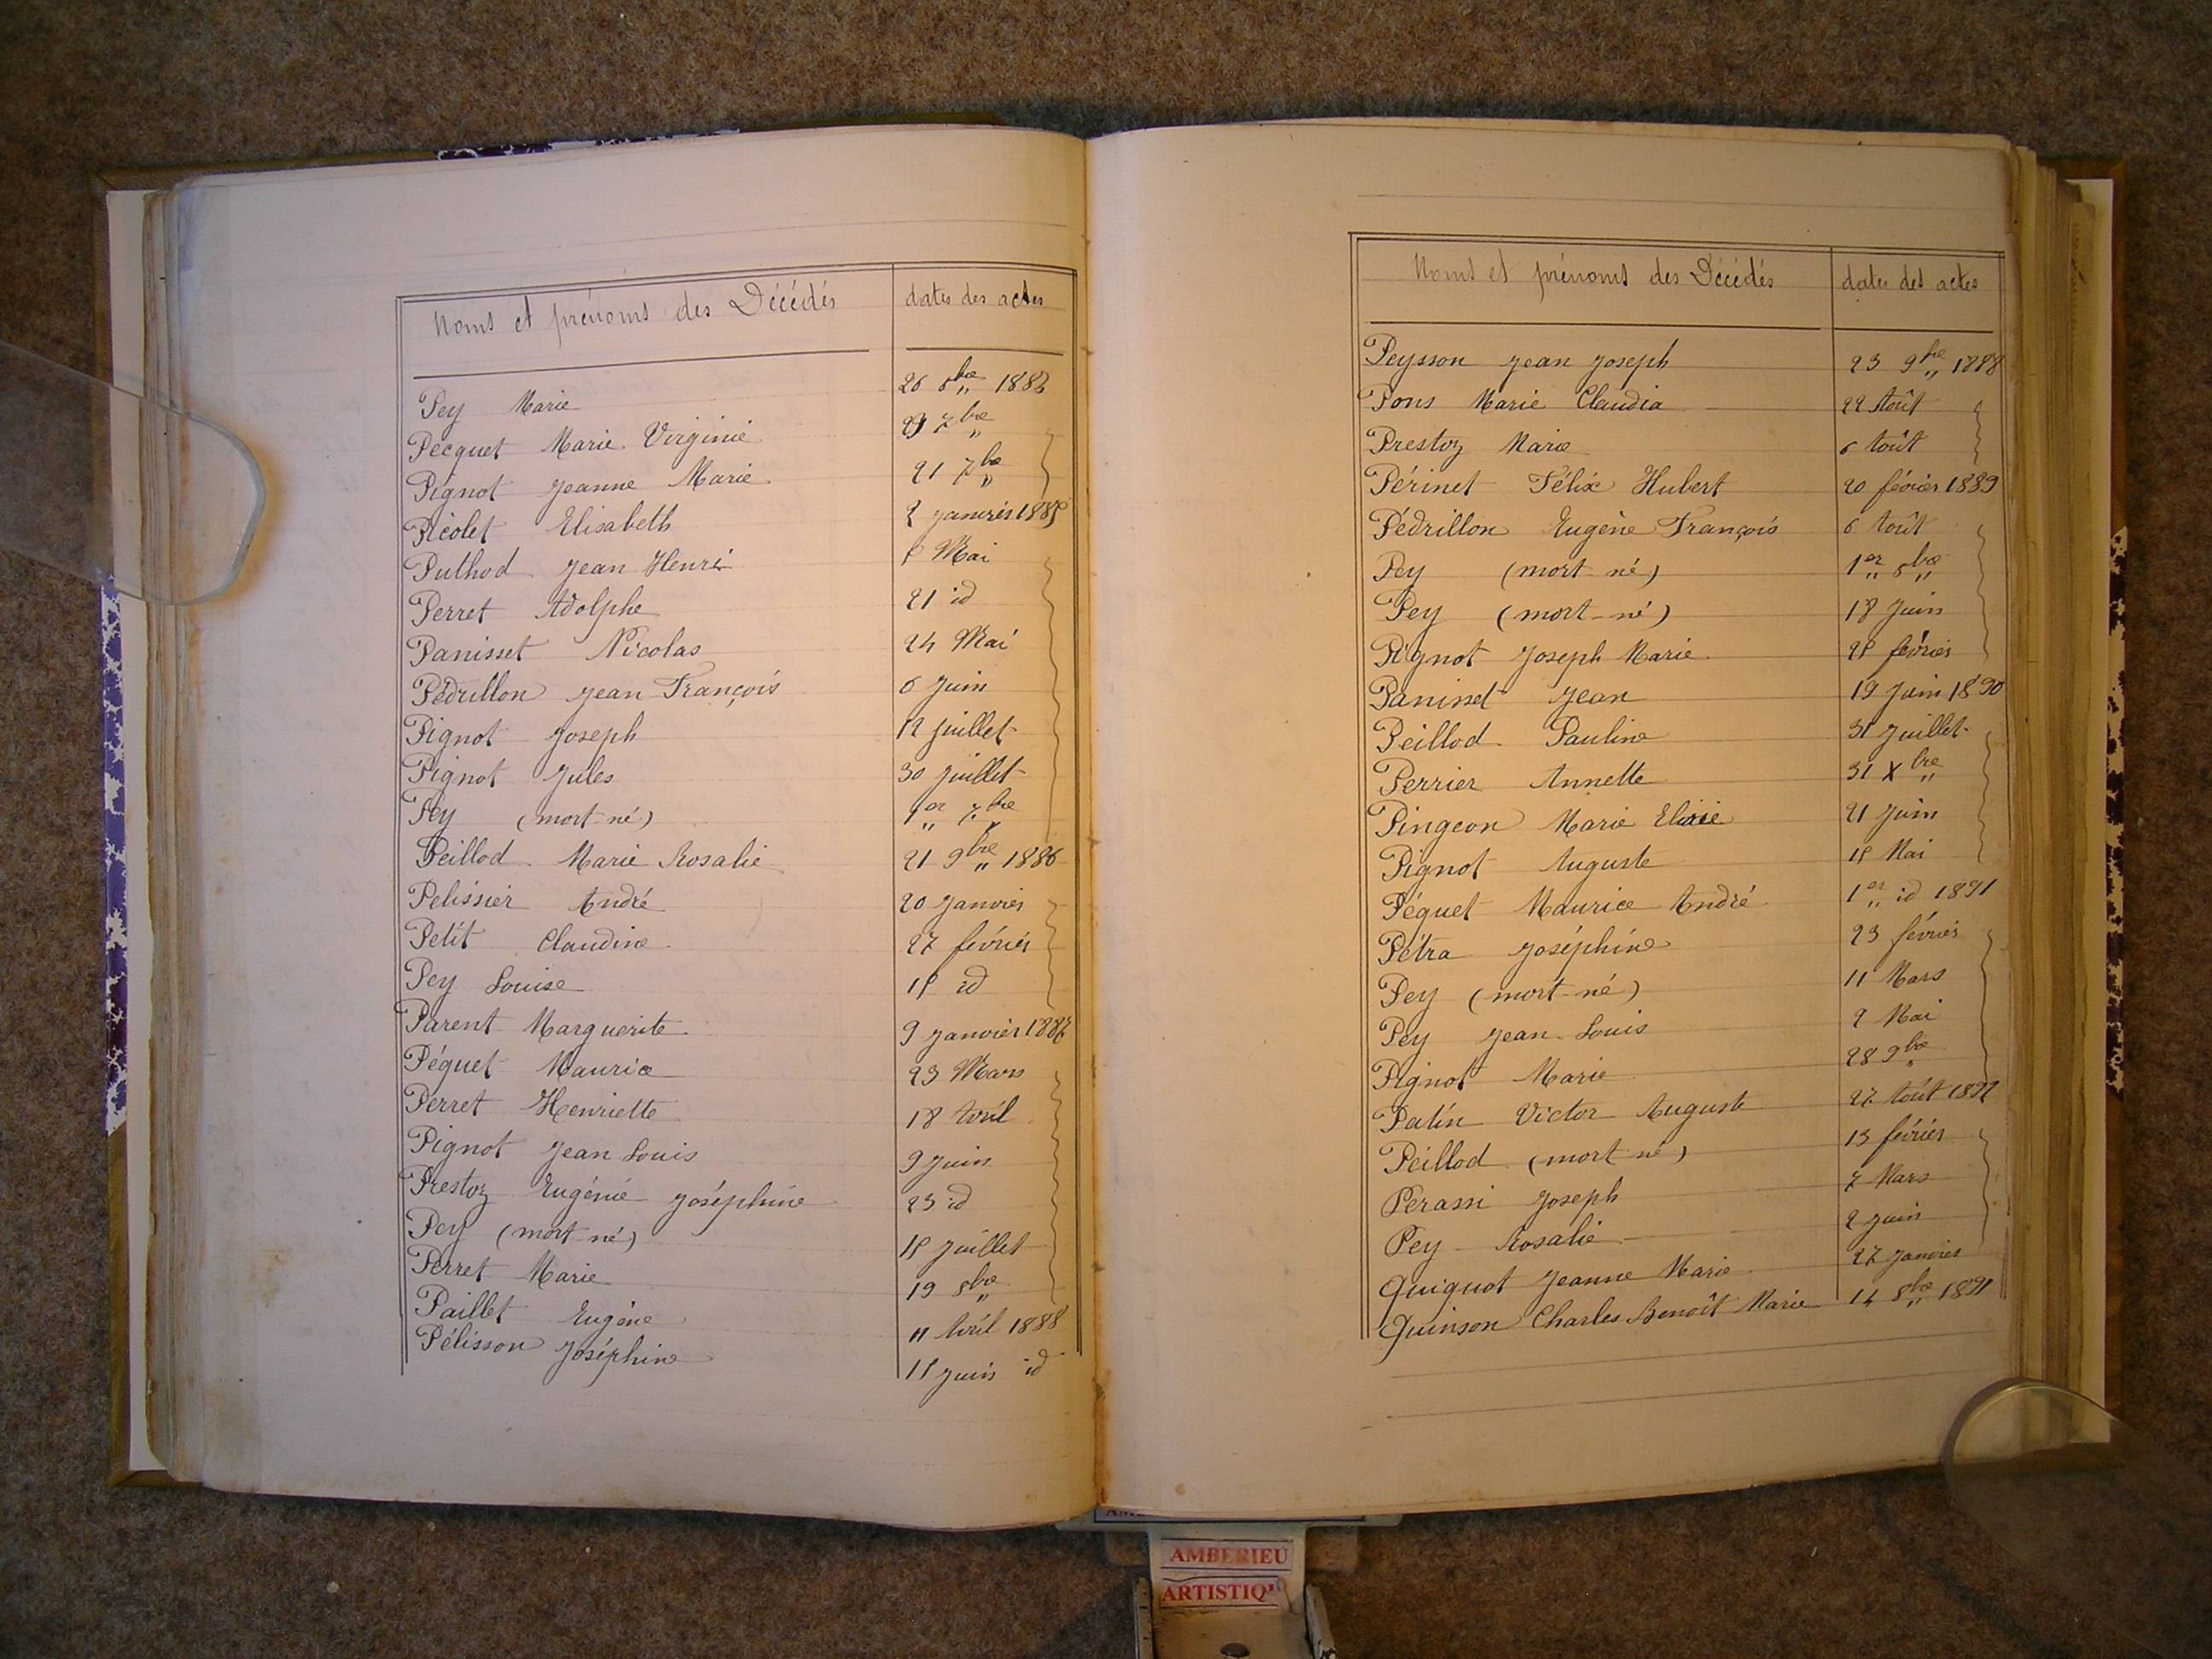 Noms et prénoms des Décédés dates des actes
Pey Marie 26 8bre
Pecquet Marie Virginie 7bre
Pignot Jeanne Marie 21 7bre
Picolet Elisabeth 2 janvier 1885
Puthod Jean Henri Mai
Perret Adolphe 21 id
Panisset Nicolas 24 Mai
Pédrillon Jean François 6 Juin
Pignot Joseph 12 juillet
Pignot Jules 30 juillet
Pey (mort-né) 1er 7bre
Peillod Marie Rosalie 21 9bre 1886
Pelissier André 20 Janvier
Petit Claudine 27 février
Pey Louise 15 id
Parent Marguerite 9 Janvier 1887
Péquet Maurice 23 Mars
Perret Henriette 18 Avril
Pignot Jean Louis 9 Juin
Prestoz Eugénie Joséphine 23 id
Pey (mort-né) 15 Juillet
Perret Marie 19 8bre
Paillet Eugène 11 Avril 1888
Pélisson Joséphine 15 Juin id
Noms et prénoms des Décédés dates des actes
Peysson Jean Joseph 23 9bre 1888
Pons Marie Claudia 22 Août
Prestoz Marie 6 Août
Périnet Félix Hubert 20 février 1889
Pédrillon Eugène François 6 Août
Pey (mort-né) 1er 8bre
Pey (mort-né) 18 Juin
Pignot Joseph Marie 25 février
Panisset Jean 19 Juin 1890
Peillod Pauline 31 Juillet
Perrier Annette 31 Xbre
Pingeon Marie Elisie 21 Juin
Pignot Auguste 15 Mai
Péquet Maurice André 1er id 1891
Pétra Joséphine 23 février
Pey (mort-né) 11 Mars
Pey Jean Louis 2 Mai
Pignot Marie 28 9bre
Patin Victor Auguste 27 Août 1892
Peillod (mort né) 13 février
Perassi Joseph 7 Mars
Pey Rosalie 2 Juin
Quiquot Jeanne Marie 27 Janvier
Quinson Charles Benoît Marie 14 8bre 1891
AMBERIEU
ARTISTIQ